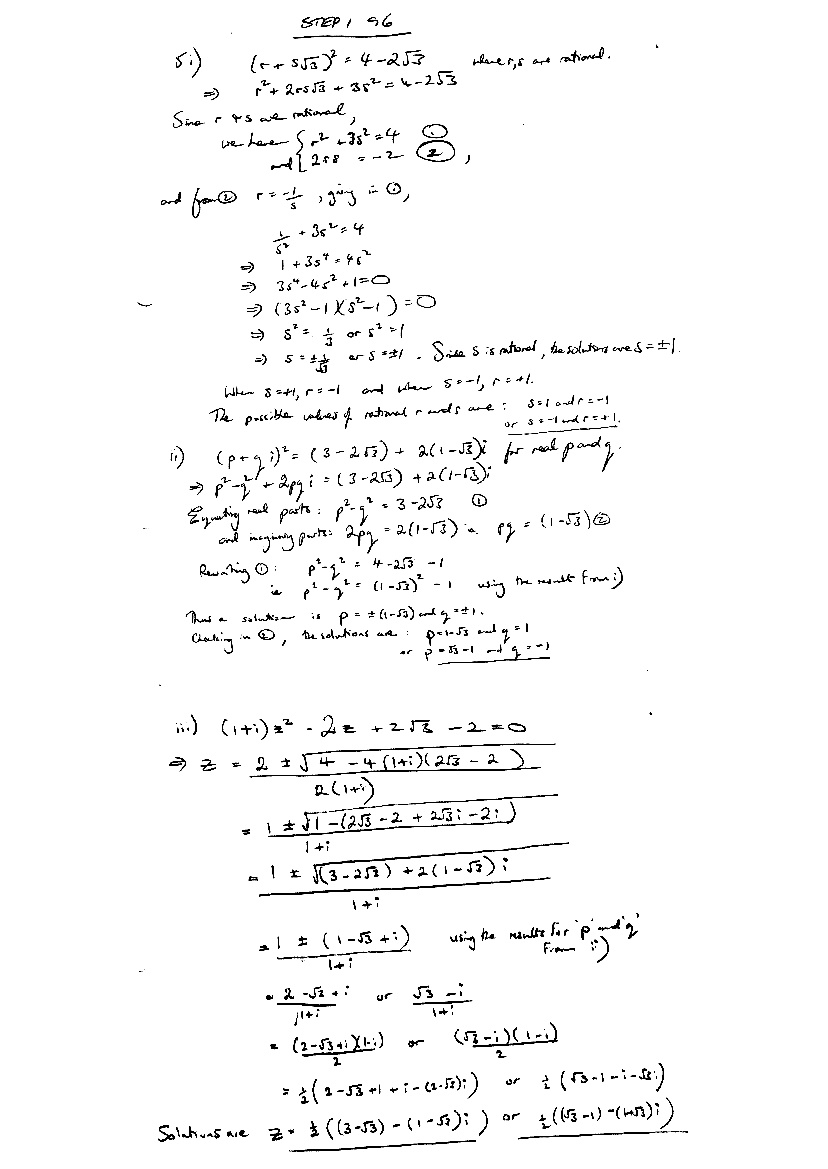 STEP 1 96
5 i) (r + s√3)² = 4 - 2√3 where r, s are rational.
⇒ r² + 2rs√3 + 3s² = 4 - 2√3
Since r & s are rational,
we have { r² + 3s² = 4 ①
and { 2rs = -2 ② ,
and from ② r = -1/s , giving in ①,
1/s² + 3s² = 4
⇒ 1 + 3s⁴ = 4s²
⇒ 3s⁴ - 4s² + 1 = 0
⇒ (3s² - 1)(s² - 1) = 0
⇒ s² = 1/3 or s² = 1
⇒ s = ± 1/√3 or s = ±1 . Since s is rational, the solutions are s = ±1.
When s = +1, r = -1 and when s = -1, r = +1.
The possible values of rational r and s are : s = 1 and r = -1
or s = -1 and r = +1.
ii) (p + qi)² = (3 - 2√3) + 2(1 - √3)i for real p and q.
⇒ p² - q² + 2pqi = (3 - 2√3) + 2(1 - √3)i
Equating real parts : p² - q² = 3 - 2√3 ①
and imaginary parts : 2pq = 2(1 - √3) ie pq = (1 - √3) ②
Rewriting ① : p² - q² = 4 - 2√3 - 1
ie p² - q² = (1 - √3)² - 1 using the result from i)
Thus a solution is p = ±(1 - √3) and q = ±1.
Checking in ②, the solutions are : p = 1 - √3 and q = 1
or p = √3 - 1 and q = -1
iii) (1+i)z² - 2z + 2√3 - 2 = 0
⇒ z = (2 ± √(4 - 4(1+i)(2√3 - 2))) / 2(1+i)
= (1 ± √(1 - (2√3 - 2 + 2√3i - 2i))) / (1+i)
= (1 ± √((3 - 2√3) + 2(1 - √3)i)) / (1+i)
= (1 ± (1 - √3 + i)) / (1+i) using the results for 'p' and 'q'
from ii)
= (2 - √3 + i) / (1+i) or (√3 - i) / (1+i)
= (2 - √3 + i)(1 - i) / 2 or (√3 - i)(1 - i) / 2
= ½(2 - √3 + 1 + i - (2 - √3)i) or ½(√3 - 1 - i - √3i)
Solutions are z = ½((3 - √3) - (1 - √3)i) or ½((√3 - 1) - (1+√3)i)